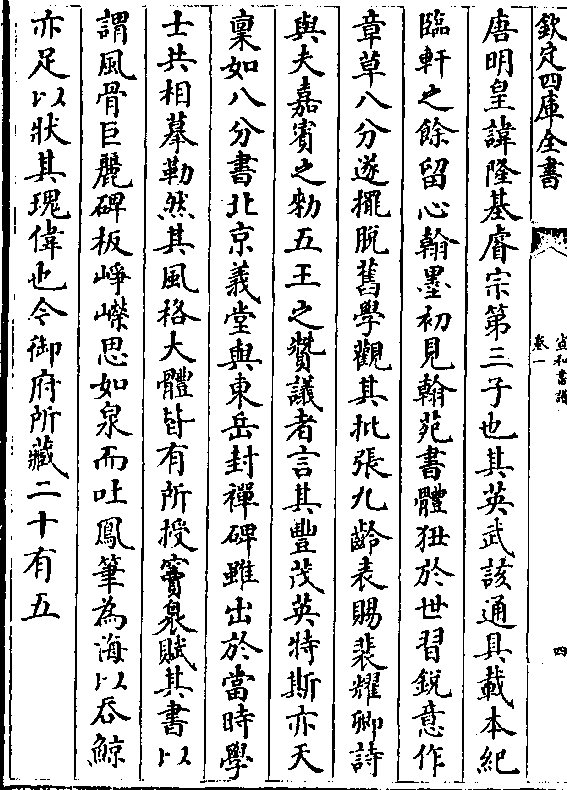 欽定四庫全書
宣和書譜
卷一
四
唐明皇諱隆基睿宗第三子也其英武該通具載本紀
臨軒之餘留心翰墨初見翰苑書體狃於世習銳意作
章草八分遂擺脫舊學觀其批張九齡表賜裴耀卿詩
與夫嘉賓之勑五王之贊議者言其豐茂英特斯亦天
稟如八分書北京義堂與東岳封禪碑雖出於當時學
士共相摹勒然其風格大體皆有所授竇臮賦其書以
謂風骨巨麗碑板崢嶸思如泉而吐鳳筆為海以吞鯨
亦足以狀其瑰偉也令御府所藏二十有五